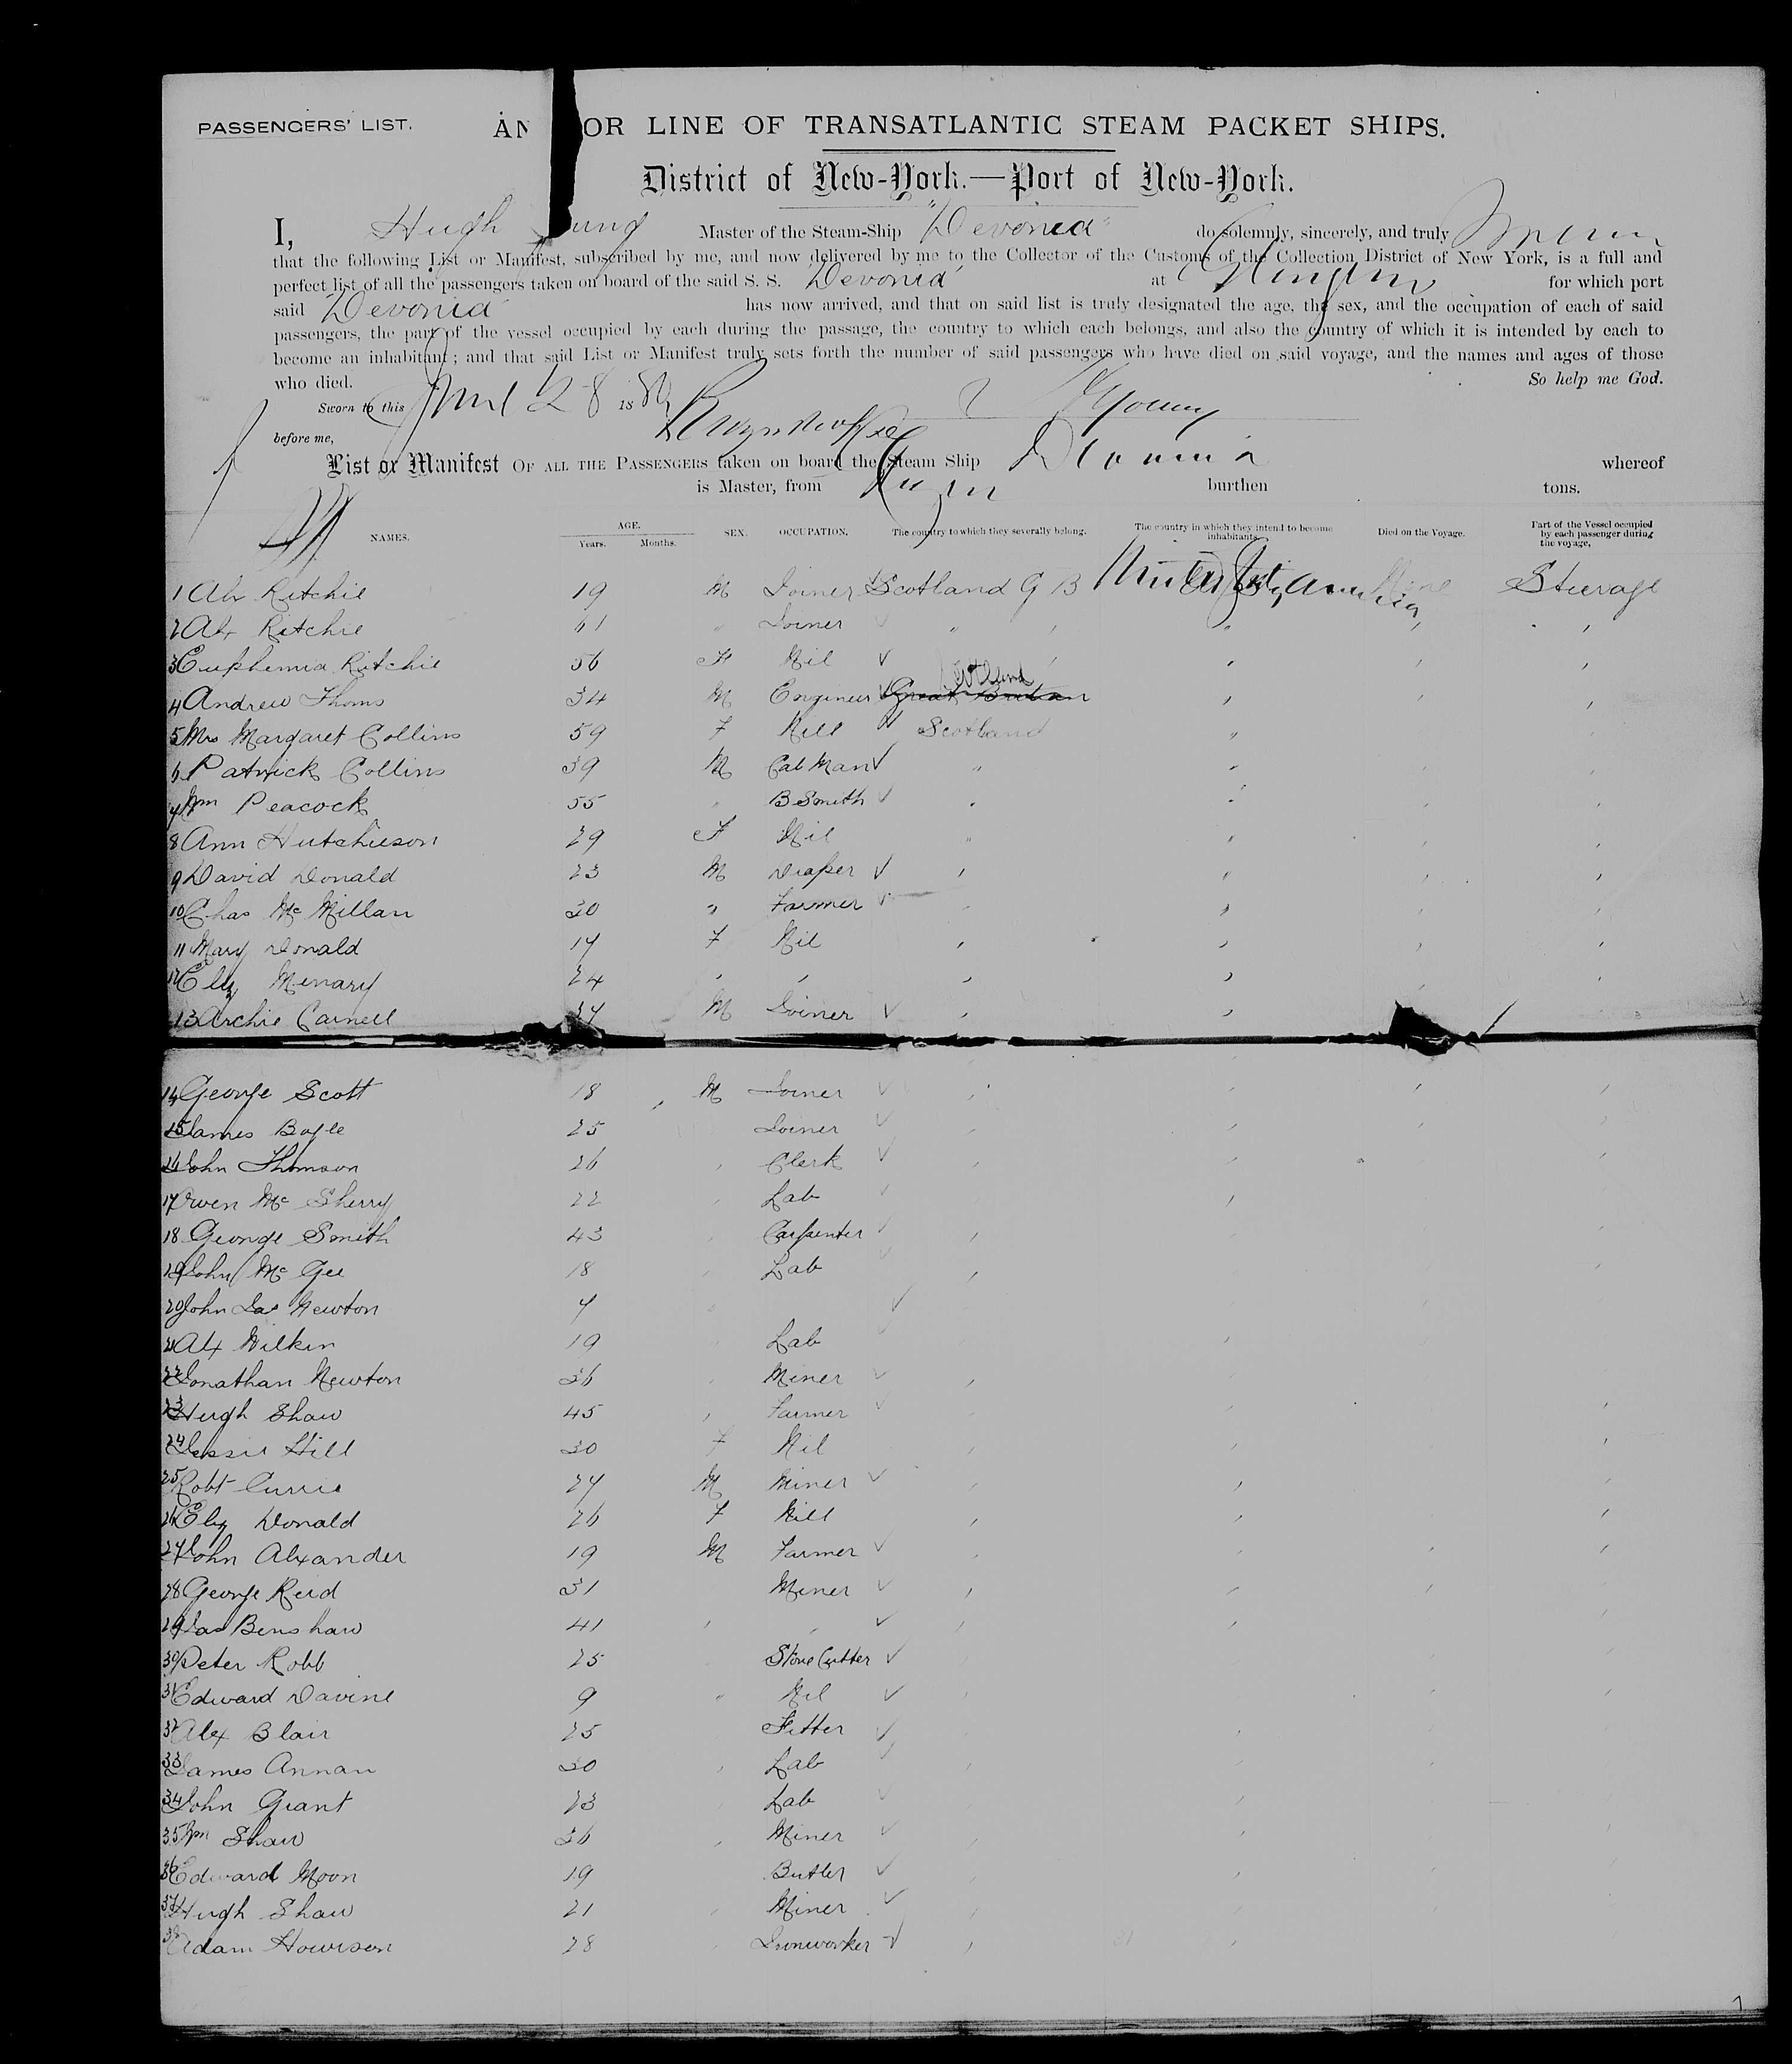 PASSENGERS' LIST.
AN OR LINE OF TRANSATLANTIC STEAM PACKET SHIPS.
District of New-York.—Port of New-York.
I, Hugh ung Master of the Steam-Ship "Devonia" do solemnly, sincerely, and truly
that the following List or Manifest, subscribed by me, and now delivered by me to the Collector of the Customs of the Collection District of New York, is a full and
perfect list of all the passengers taken on board of the said S. S. Devonia at for which port
said Devonia has now arrived, and that on said list is truly designated the age, the sex, and the occupation of each of said
passengers, the part of the vessel occupied by each during the passage, the country to which each belongs, and also the country of which it is intended by each to
become an inhabitant; and that said List or Manifest truly sets forth the number of said passengers who have died on said voyage, and the names and ages of those
who died. So help me God.
Sworn to this 28 18 Young
before me,
List or Manifest OF ALL THE PASSENGERS taken on board the Steam Ship Devonia whereof
is Master, from burthen tons.
NAMES. AGE. Years. Months. SEX. OCCUPATION. The country to which they severally belong. The country in which they intend to become inhabitants. Died on the Voyage. Part of the Vessel occupied by each passenger during the voyage.
1 Alx Ritchie 19 M Joiner Scotland G B America None Steerage
2 Alx Ritchie 61 " Joiner ✓ " "
3 Euphemia Ritchie 56 F Nil ✓
4 Andrew Thoms 34 M Engineer ✓ Great Britain Scotland
5 Mrs Margaret Collins 59 F Nill ✓ Scotland "
6 Patrick Collins 39 M Cab Man ✓ " "
7 Wm Peacock 55 " B Smith ✓ " "
8 Ann Hutchieson 29 F Nil " "
9 David Donald 23 M Draper ✓ " "
10 Chas Mc Millan 30 " Farmer ✓ " "
11 Mary Donald 17 F Nil " "
12 Eliz Menary 24 " " " "
13 Archie Carnell 37 M Joiner ✓ " "
14 George Scott 18 M Joiner ✓
15 James Bogle 25 Joiner ✓
16 John Thomson 26 " Clerk ✓
17 Owen Mc Sherry 22 " Lab ✓
18 George Smith 43 " Carpenter ✓
19 John Mc Gee 18 " Lab ✓
20 John Jas Newton 7 " ✓
21 Alx Wilken 19 " Lab ✓
22 Jonathan Newton 36 " Miner ✓
23 Hugh Shaw 45 " Farmer ✓
24 Jessie Hill 30 F Nil
25 Robt Currie 27 M Miner ✓
26 Eliz Donald 26 F Nill
27 John Alxander 19 M Farmer ✓
28 George Reid 31 Miner ✓
29 Jas Benshaw 41 " " ✓
30 Peter Robb 25 Stone Cutter ✓
31 Edward Davine 9 " Nil ✓
32 Alex Blair 25 Fitter ✓
33 James Annan 30 " Lab ✓
34 John Grant 23 " Lab ✓
35 Wm Shaw 36 " Miner ✓
36 Edward Moon 19 Butler ✓
37 Hugh Shaw 21 " Miner ✓
38 Adam Howieson 28 " Ironworker ✓